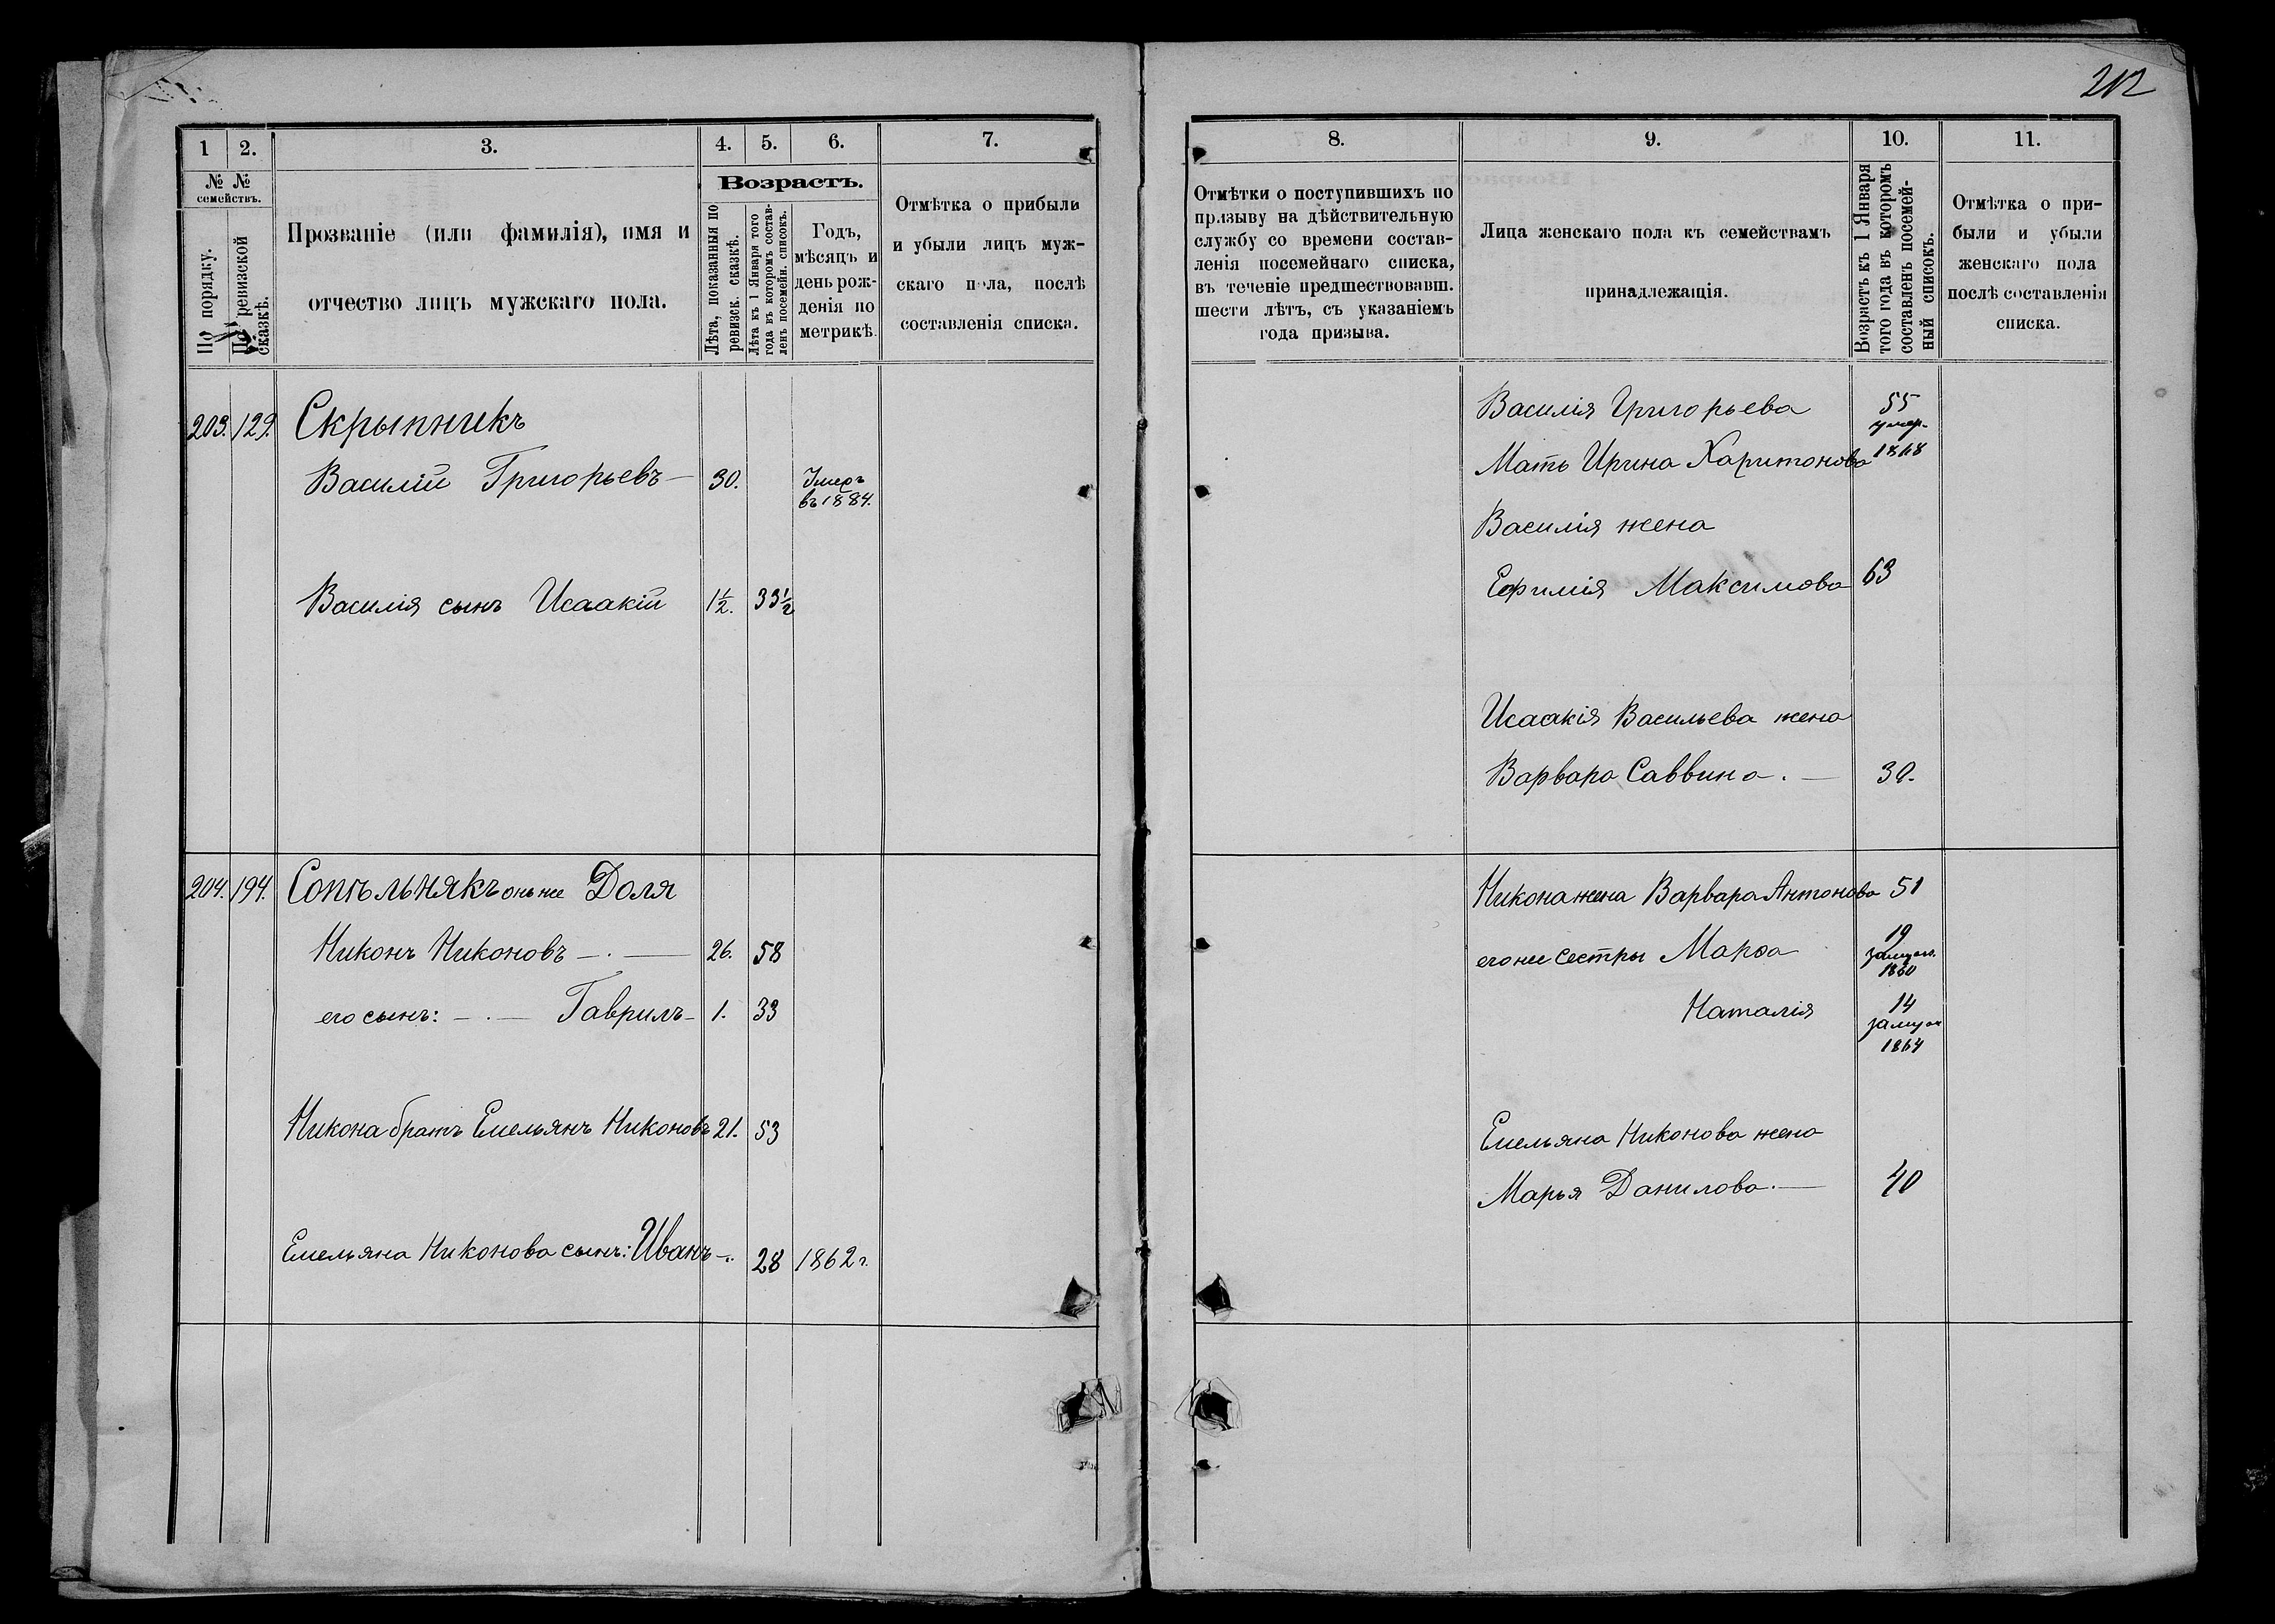 212
1 2. 3. 4. 5. 6. 7.
№ № семействъ.
По порядку.
По ревизской сказкѣ.
Прозваніе (или фамилія), имя и
отчество лицъ мужскаго пола.
Возрастъ.
Лѣта, показанныя по
ревизск. сказкѣ.
Лѣта къ 1 Января того
года въ которомъ состав-
ленъ посемейн. списокъ.
Годъ,
мѣсяцъ и
день рож-
денія по
метрикѣ.
Отмѣтка о прибыли
и убыли лицъ муж-
скаго пола, послѣ
составленія списка.
203. 129. Скрыпникъ
Василій Григорьевъ — 30. Умеръ
въ 1884.
Василія сынъ Исаакій 1½. 33½
204. 194. Сопѣльнякъ онъ же Доля
Никонъ Никоновъ — . — 26. 58
его сынъ: — . — Гаврилъ — 1. 33
Никона братъ Емельянъ Никоновъ 21. 53
Емельяна Никонова сынъ: Иванъ — . 28 1862 г.
8. 9. 10. 11.
Отмѣтки о поступившихъ по
призыву на дѣйствительную
службу со времени состав-
ленія посемейнаго списка,
въ теченіе предшествовавш.
шести лѣтъ, съ указаніемъ
года призыва.
Лица женскаго пола къ семействамъ
принадлежащія.
Возрастъ къ 1 Января
того года въ которомъ
составленъ посемей-
ный списокъ.
Отмѣтка о при-
были и убыли
женскаго пола
послѣ составленія
списка.
Василія Григорьева 55
умер.
Мать Ирина Харитонова 1868
Василія жена
Ефимія Максимова 63
Исаакія Васильева жена
Варвара Саввина . — 30.
Никона жена Варвара Антонова 51
его же сестры Марѳа 19
замуж.
1860
Наталія 14
замуж
1864
Емельяна Никонова жена
Марья Данилова . — 40